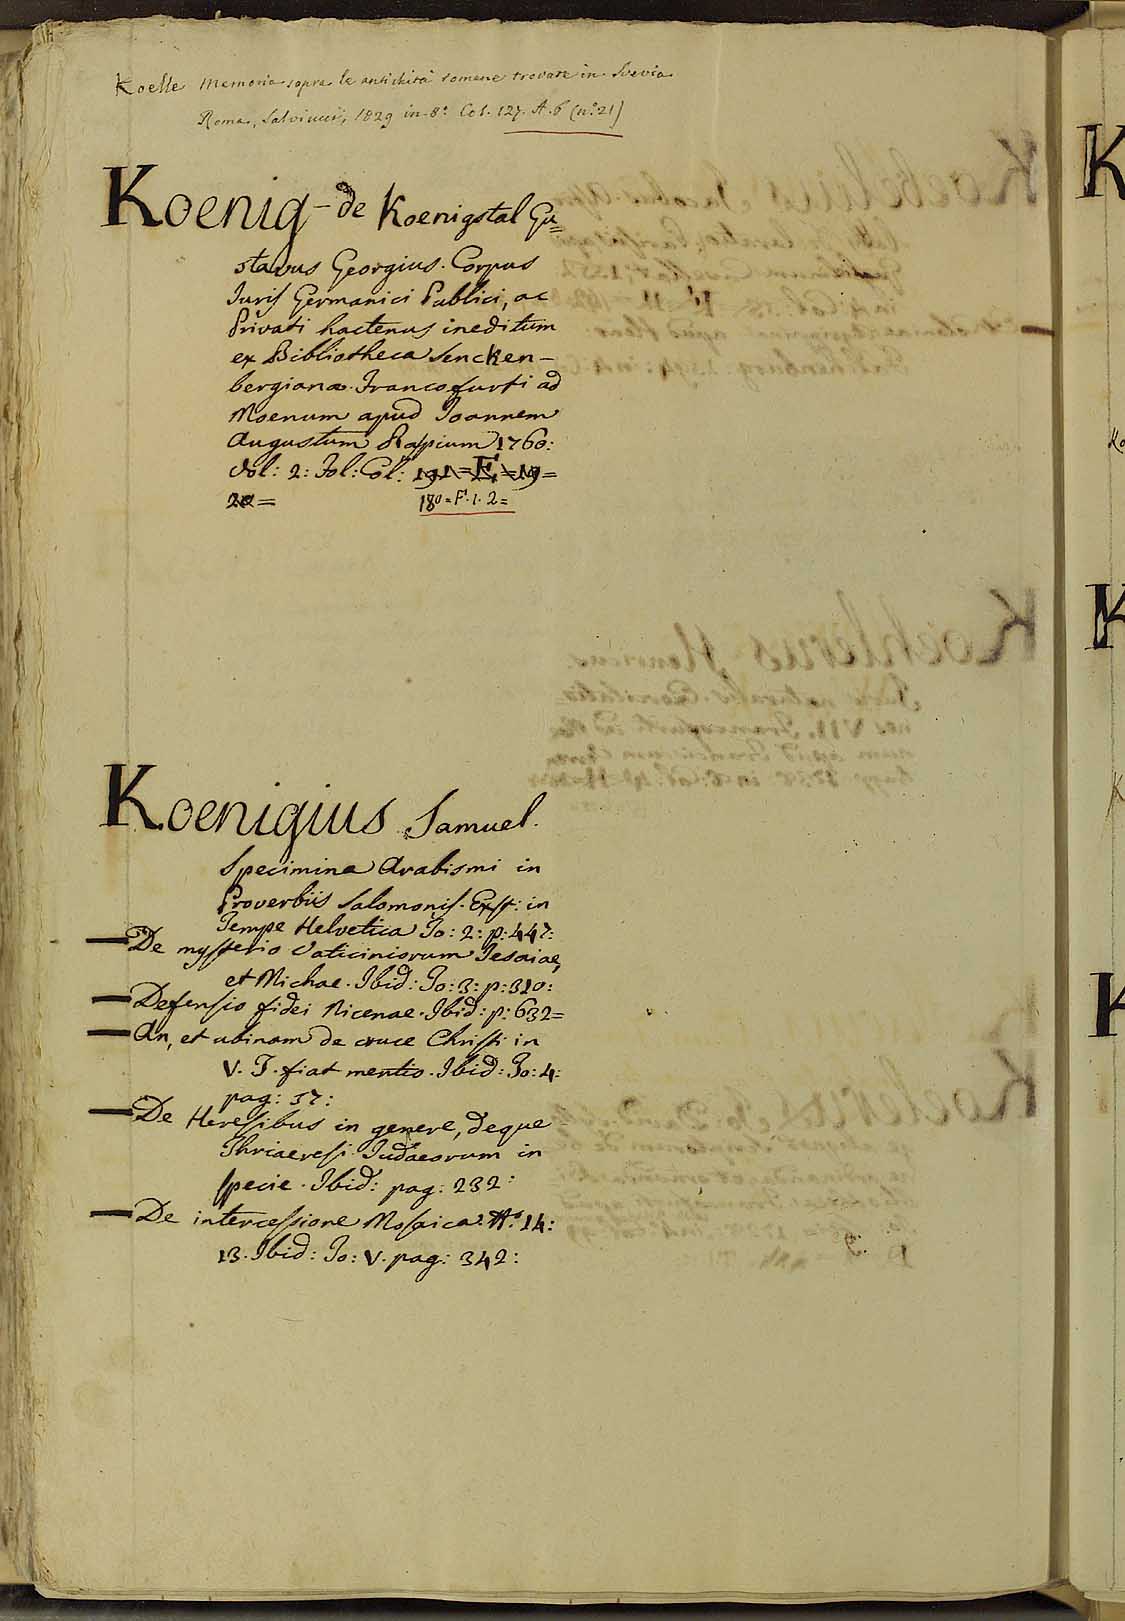 Koelle Memoria sopra le antichità romane trovate in Svevia
Roma, Salviucci, 1829 in-8° Col. 127. A. 6 (n.° 21)
Koenig-de Koenigstal Gu=
stavus Georgius. Corpus
Juris Germanici Publici, ac
Privati hactenus ineditum
ex Bibliotheca Sencken-
bergiana. Francofurti ad
Moenum apud Joannem
Augustum Raspium 1760:
Vol: 2: Fol: Col: 191=E=19=
20=
180=F.1.2=
Koenigius Samuel.
Specimina Arabismi in
Proverbiis Salomonis. Exst: in
Tempe Helvetica To: 2: p: 447:
— De mysterio Vaticiniorum Jesaiae,
et Michae. Ibid: To: 3: p: 310:
— Defensio fidei Nicenae. Ibid: p: 632=
— An, et ubinam de cruce Christi in
V. T. fiat mentio. Ibid: To: 4:
pag: 37:
— De Heresibus in genere, deque
Thriaeresi Judaeorum in
specie. Ibid: pag: 232:
— De intercessione Mosaica. 14:
13. Ibid: To: V. pag: 342: